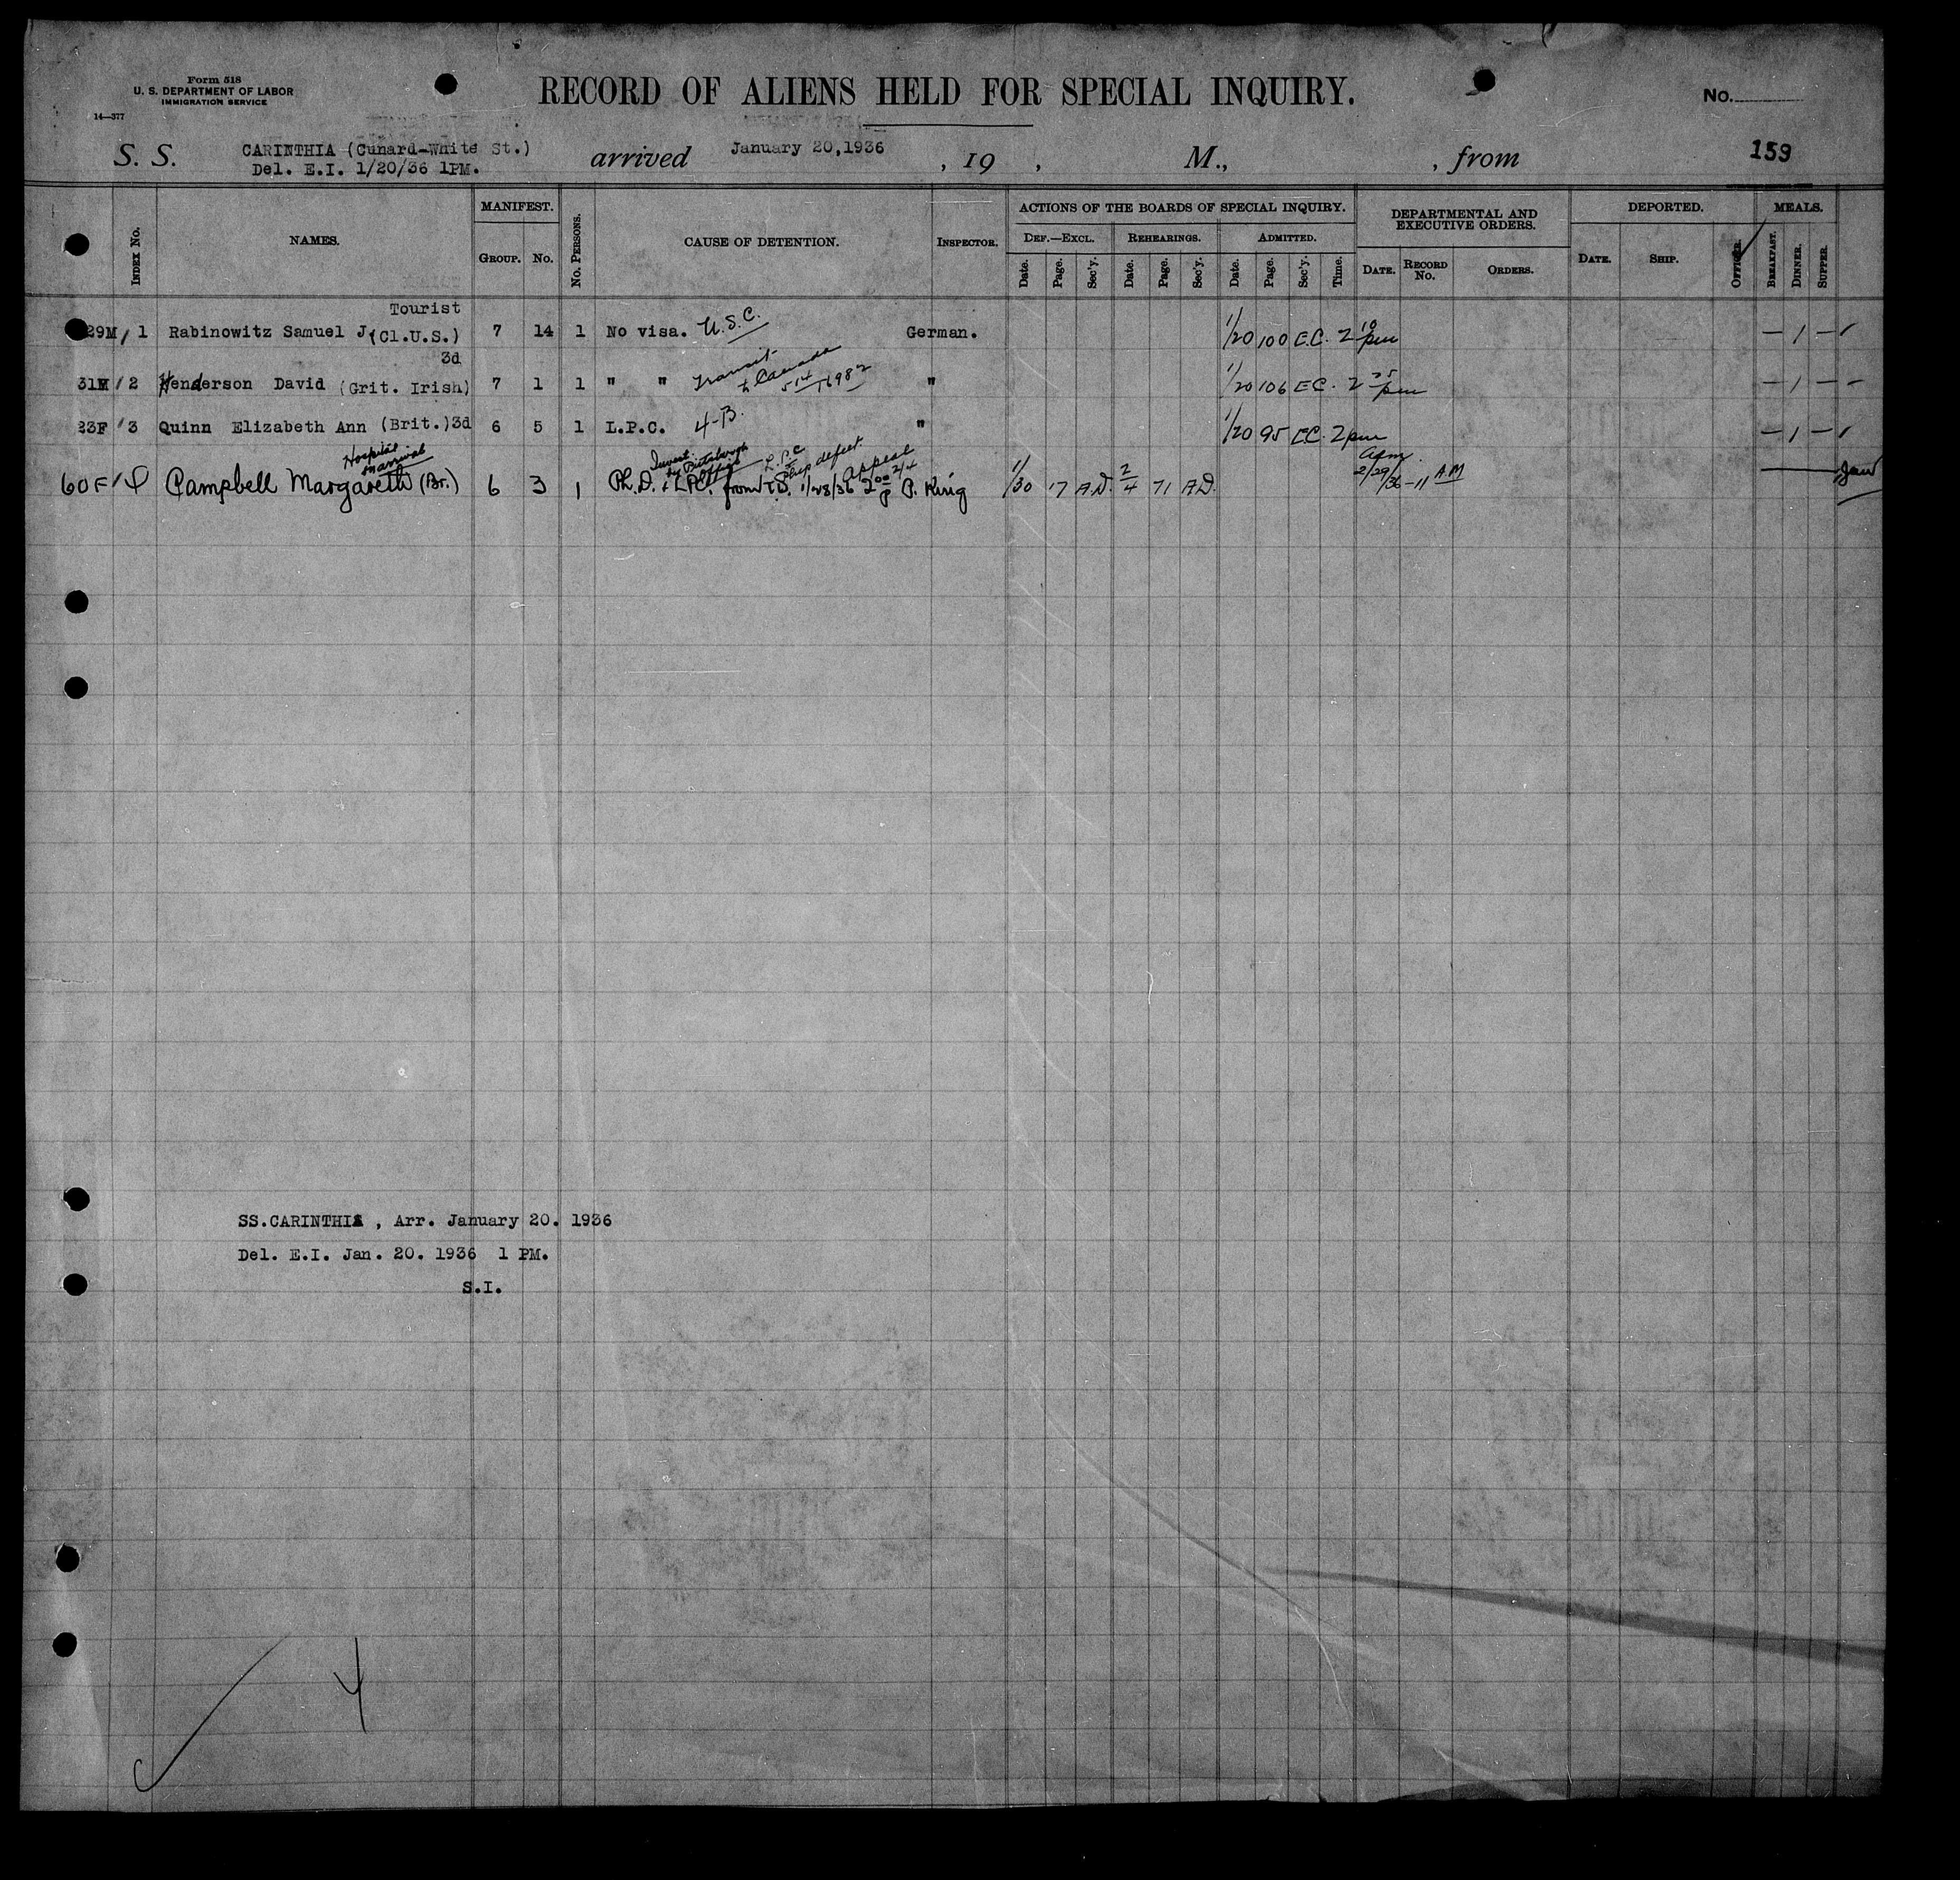 Form 518
U. S. DEPARTMENT OF LABOR
IMMIGRATION SERVICE
14—377
RECORD OF ALIENS HELD FOR SPECIAL INQUIRY.
No.
S. S. CARINTHIA (Cunard-White St.) arrived January 20,1936 , 19 , M., , from 159
Del. E.I. 1/20/36 1PM.
INDEX No. NAMES. MANIFEST. GROUP. No. No. PERSONS. CAUSE OF DETENTION. INSPECTOR. ACTIONS OF THE BOARDS OF SPECIAL INQUIRY. DEF.—EXCL. Date. Page. Sec'y. REHEARINGS. Date. Page. Sec'y. ADMITTED. Date. Page. Sec'y. Time. DEPARTMENTAL AND EXECUTIVE ORDERS. DATE. RECORD No. ORDERS. DEPORTED. DATE. SHIP. OFFICER. MEALS. BREAKFAST. DINNER. SUPPER.
Tourist
29M/ 1 Rabinowitz Samuel J.(Cl.U.S.) 7 14 1 No visa. U.S.C. German. 1/20 100 E.C. 2 10 pm — 1 —
3d
31M/ 2 Henderson David (Grit. Irish) 7 1 1 " " Transit to Canada 514 " 1/20 106 E.C. 2 25 pm — 1 — —
23F/ 3 Quinn Elizabeth Ann (Brit.)3d 6 5 1 L.P.C. 4-B. " 1/20 95 E.C. 2pm — 1 —
Hospital on arrival
60F/ 4 Campbell Margareth (Br.) 6 3 1 Ph.D. + LPC. from T.S. 1/28/36 2 00 P P. King 1/30 17 A.D. 2/4 71 A.D. Adm. 2/29/36 - 11 AM
Invest. by Pittsburgh Office L.P.C. Phys defect. Appeal 2/4
SS.CARINTHIA , Arr. January 20. 1936
Del. E.I. Jan. 20. 1936 1 PM.
S.I.
4